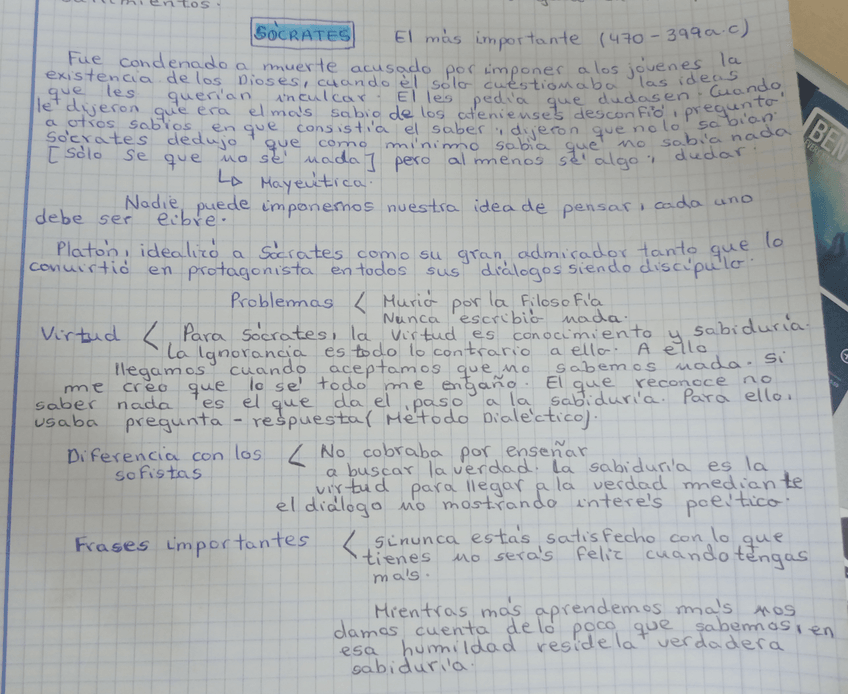 SÓCRATES El más importante (470-399 a.c)
Fue condenado a muerte acusado por imponer a los jóvenes la
existencia de los Dioses, cuando él solo cuestionaba las ideas
que les querían inculcar. El les pedía que dudasen. Cuando
le dijeron que era el más sabio de los atenienses desconfió, preguntó
a otros sabios en que consistía el saber, dijeron que no lo sabían
Sócrates dedujo que como mínimo sabía que no sabía nada
[sólo se que no sé nada] pero al menos sé algo, dudar.
↳ Mayeútica.
Nadie puede imponernos nuestra idea de pensar, cada uno
debe ser libre.
Platón, idealizó a Sócrates como su gran admirador tanto que lo
convirtió en protagonista en todos sus diálogos siendo discípulo.
Problemas < Murió por la Filosofía
Nunca escribió nada.
Virtud < Para Sócrates, la virtud es conocimiento y sabiduría.
La Ignorancia es todo lo contrario a ello. A ello
llegamos cuando aceptamos que no sabemos nada. Si
me creo que lo sé todo me engaño. El que reconoce no
saber nada es el que da el paso a la sabiduría. Para ello,
usaba pregunta - respuesta (Método Dialéctico).
Diferencia con los < No cobraba por enseñar
sofistas a buscar la verdad. La sabiduría es la
virtud para llegar a la verdad mediante
el diálogo no mostrando interés político.
Frases importantes < si nunca estás satisfecho con lo que
tienes no serás feliz cuando tengas
más.
Mientras más aprendemos más nos
damos cuenta de lo poco que sabemos, en
esa humildad reside la verdadera
sabiduría.
BEN